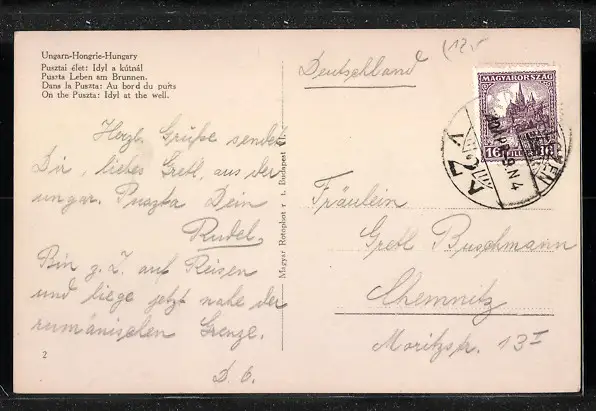 Ungarn-Hongrie-Hungary
Pusztai élet: Idyl a kútnál
Puszta Leben am Brunnen.
Dans la Puszta: Au bord du puits
On the Puszta: Idyl at the well.
Herzl. Grüße sendet
Dir, liebes Gretl, aus der
ungar. Puszta Dein
Rudel.
Bin z. Z. auf Reisen
und liege jetzt nahe der
rumänischen Grenze.
D. O.
2
Magyar Rotophot r t. Budapest
Deutschland
MAGYARORSZÁG
16 16
Fräulein
Gretl Buschmann
Chemnitz
Moritzstr. 13 I